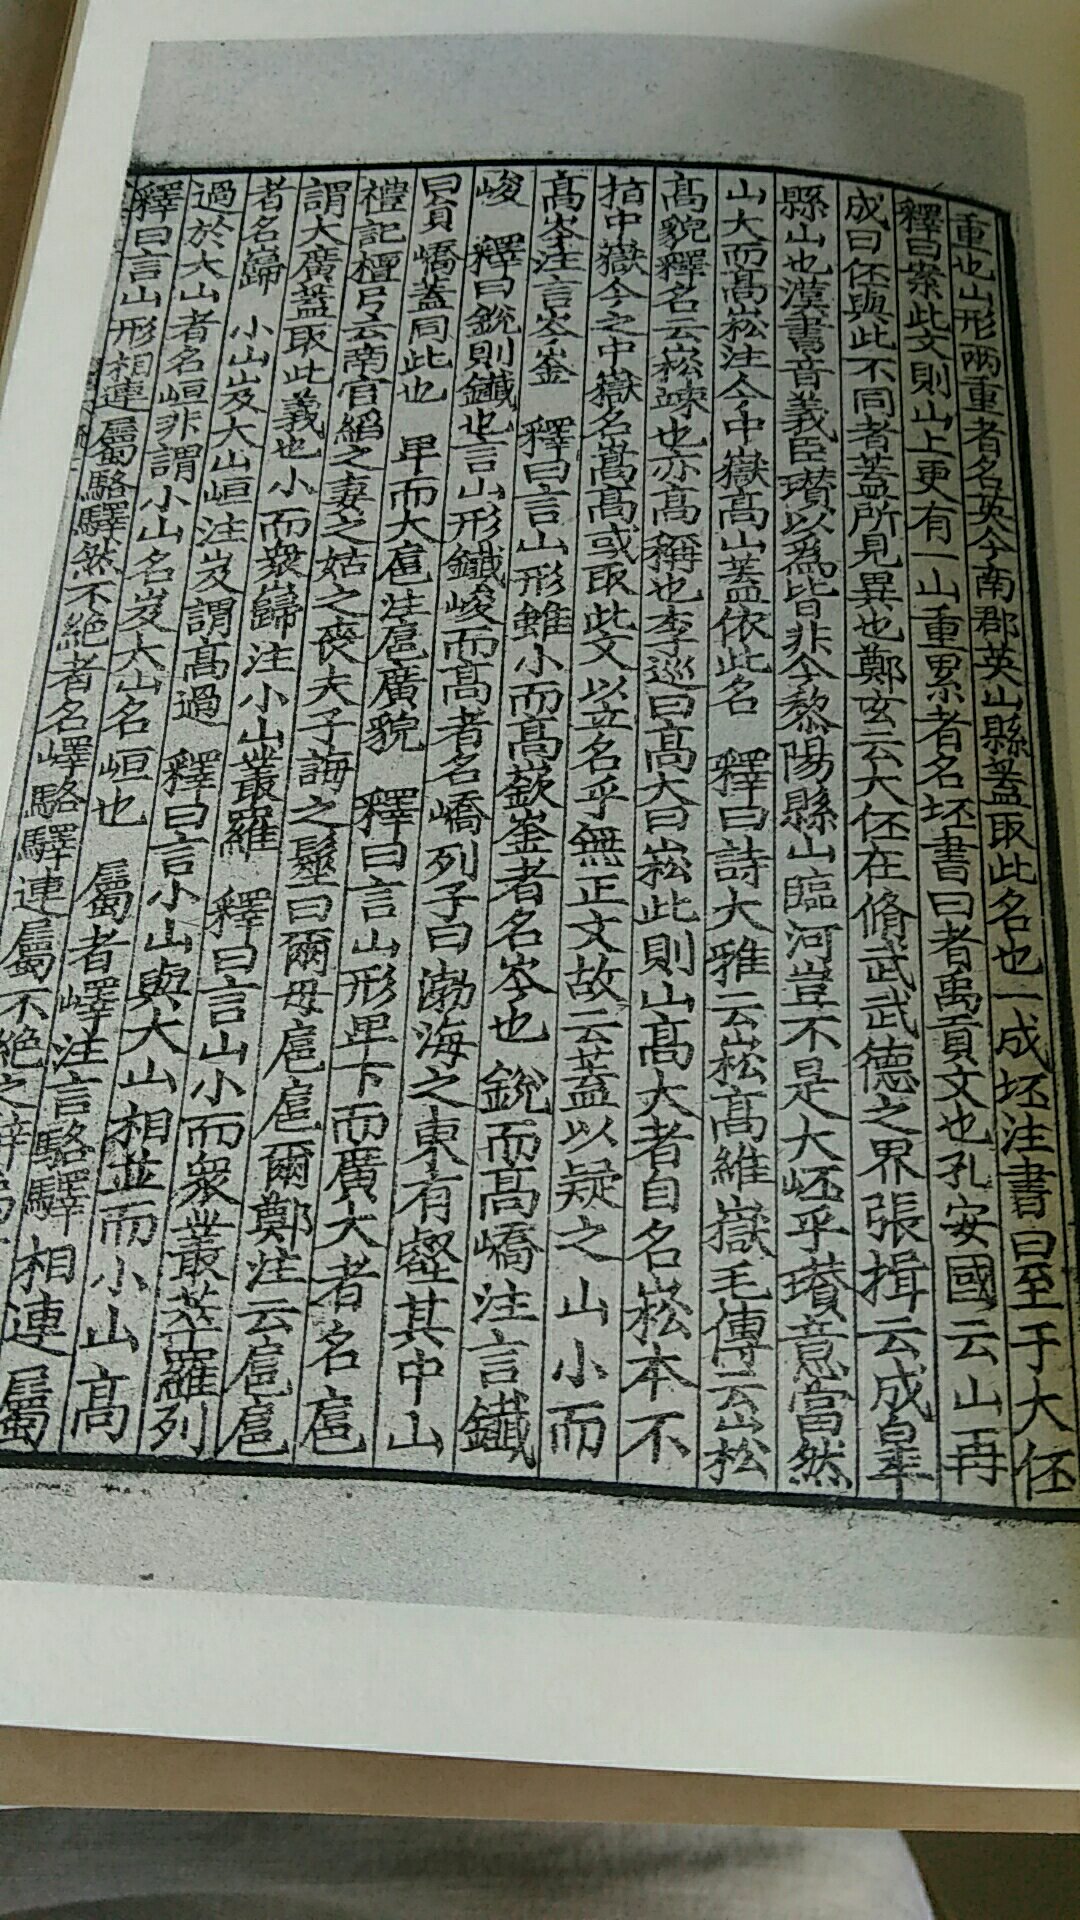 重也山形兩重者名英今南郡英山縣蓋取此名也一成坯注書曰至于大伾
釋曰案此文則山上更有一山重累者名坯書曰者禹貢文也孔安國云山再
成曰伾與此不同者蓋所見異也鄭玄云大伾在脩武武德之界張揖云成皐
縣山也漢書音義臣瓚以爲皆非今黎陽縣山臨河豈不是大岯乎瓚意當然
山大而髙崧注今中嶽髙山蓋依此名　釋曰詩大雅云崧髙維嶽毛傳云崧
髙貌釋名云崧竦也亦髙稱也李巡曰髙大曰崧此則山髙大者自名崧本不
指中嶽今之中嶽名嵩髙或取此文以立名乎無正文故云蓋以疑之　山小而
髙岑注言岑崟　釋曰言山形雖小而髙嶔崟者名岑也　銳而髙嶠注言鑯
峻　釋曰銳則鑯也言山形鑯峻而髙者名嶠列子曰渤海之東有壑其中山
曰員嶠蓋同此也　卑而大扈注扈廣貌　釋曰言山形卑下而廣大者名扈
禮記檀弓云南宫縚之妻之姑之喪夫子誨之髽曰爾毋扈扈爾鄭注云扈扈
謂大廣蓋取此義也小而衆巋注小山叢羅　釋曰言山小而衆叢萃羅列
者名巋　小山岌大山峘注岌謂髙過　釋曰言小山與大山相並而小山髙
過於大山者名峘非謂小山名岌大山名峘也　屬者嶧注言駱驛相連屬
釋曰言山形相連屬駱驛然不絕者名嶧駱驛連屬不絕之辭